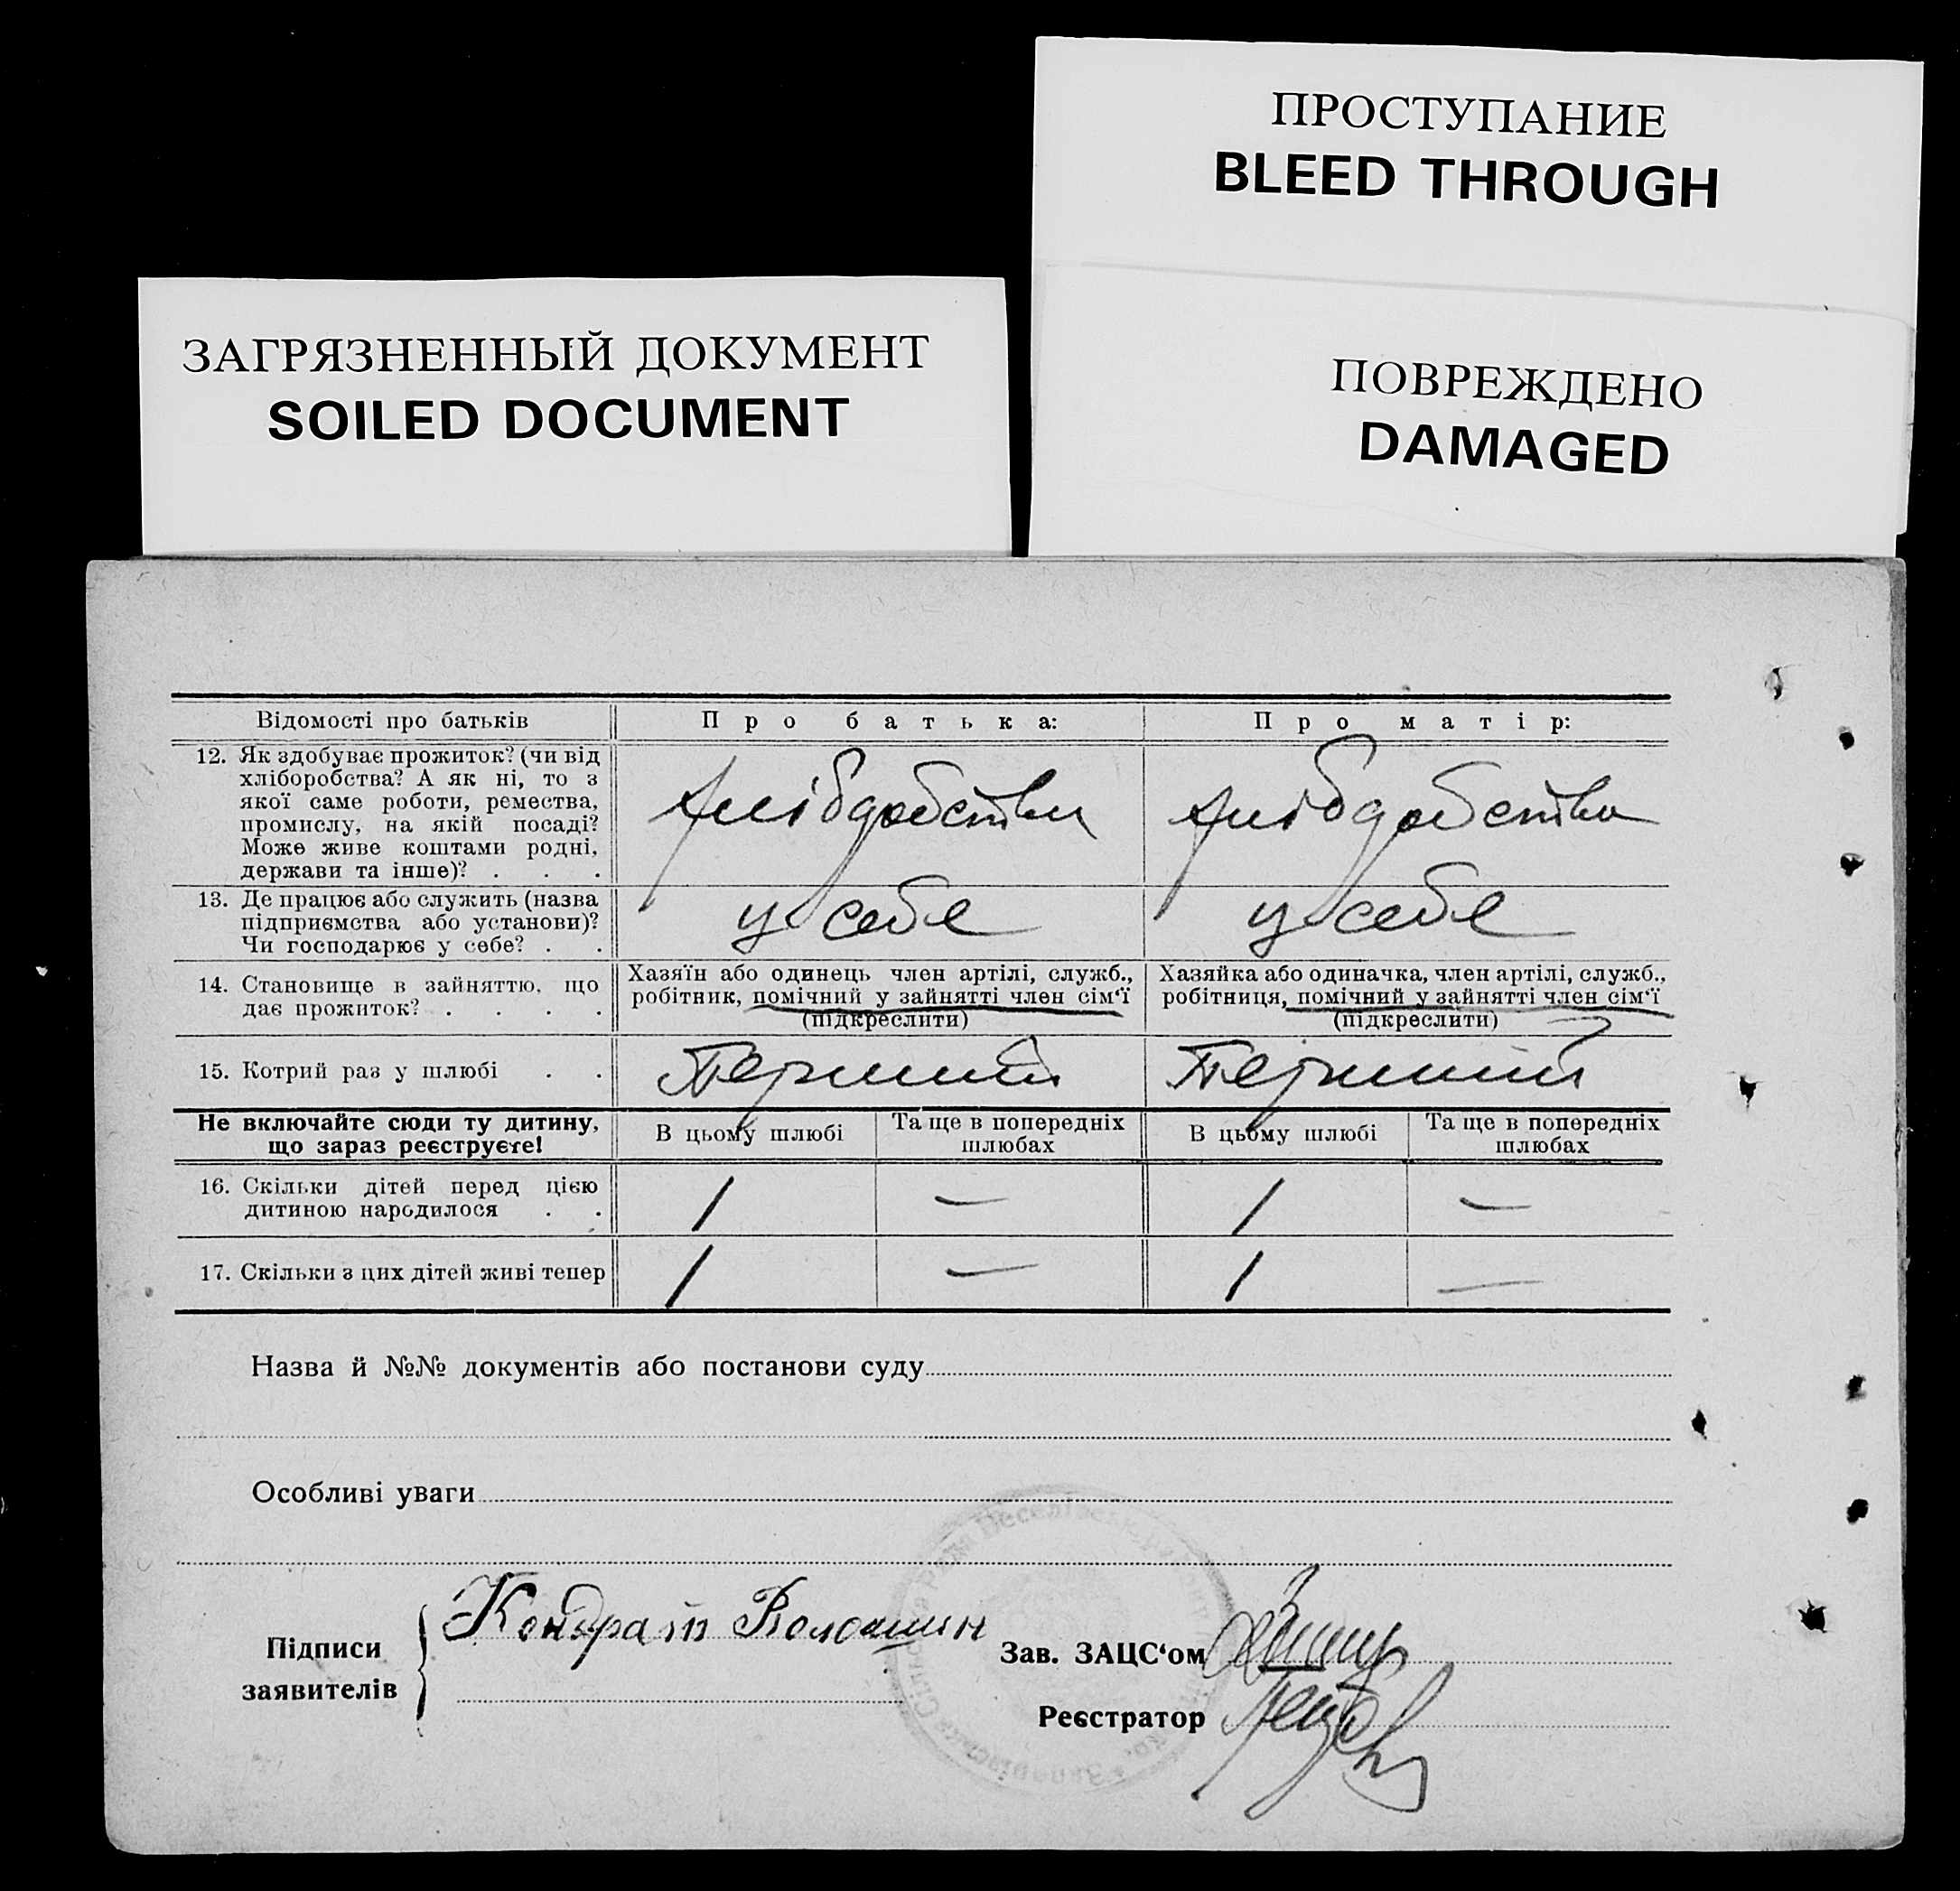 ПРОСТУПАНИЕ
BLEED THROUGH
ЗАГРЯЗНЕННЫЙ ДОКУМЕНТ
SOILED DOCUMENT
ПОВРЕЖДЕНО
DAMAGED
Відомості про батьків Про батька: Про матір:
12. Як здобуває прожиток? (чи від
хліборобства? А як ні, то з
якої саме роботи, ремества,
промислу, на якій посаді?
Може живе коштами родні,
держави та інше)? . . .
13. Де працює або служить (назва
підприємства або установи)?
Чи господарює у себе? . .
у себе у себе
14. Становище в зайняттю, що
дає прожиток? . . . .
Хазяїн або одинець член артілі, служб.,
робітник, помічний у зайнятті член сім'ї
(підкреслити)
Хазяйка або одиначка, член артілі, служб.,
робітниця, помічний у зайнятті член сім'ї
(підкреслити)
15. Котрий раз у шлюбі . . Перший Перший
Не включайте сюди ту дитину,
що зараз реєструєте!
В цьому шлюбі
Та ще в попередніх
шлюбах
В цьому шлюбі
Та ще в попередніх
шлюбах
16. Скільки дітей перед цією
дитиною народилося . .
1 — 1 —
17. Скільки з цих дітей живі тепер 1 — 1 —
Назва й №№ документів або постанови суду
Особливі уваги
Підписи
заявителів
Кондрат Волошин
Зав. ЗАЦС'ом
Реєстратор